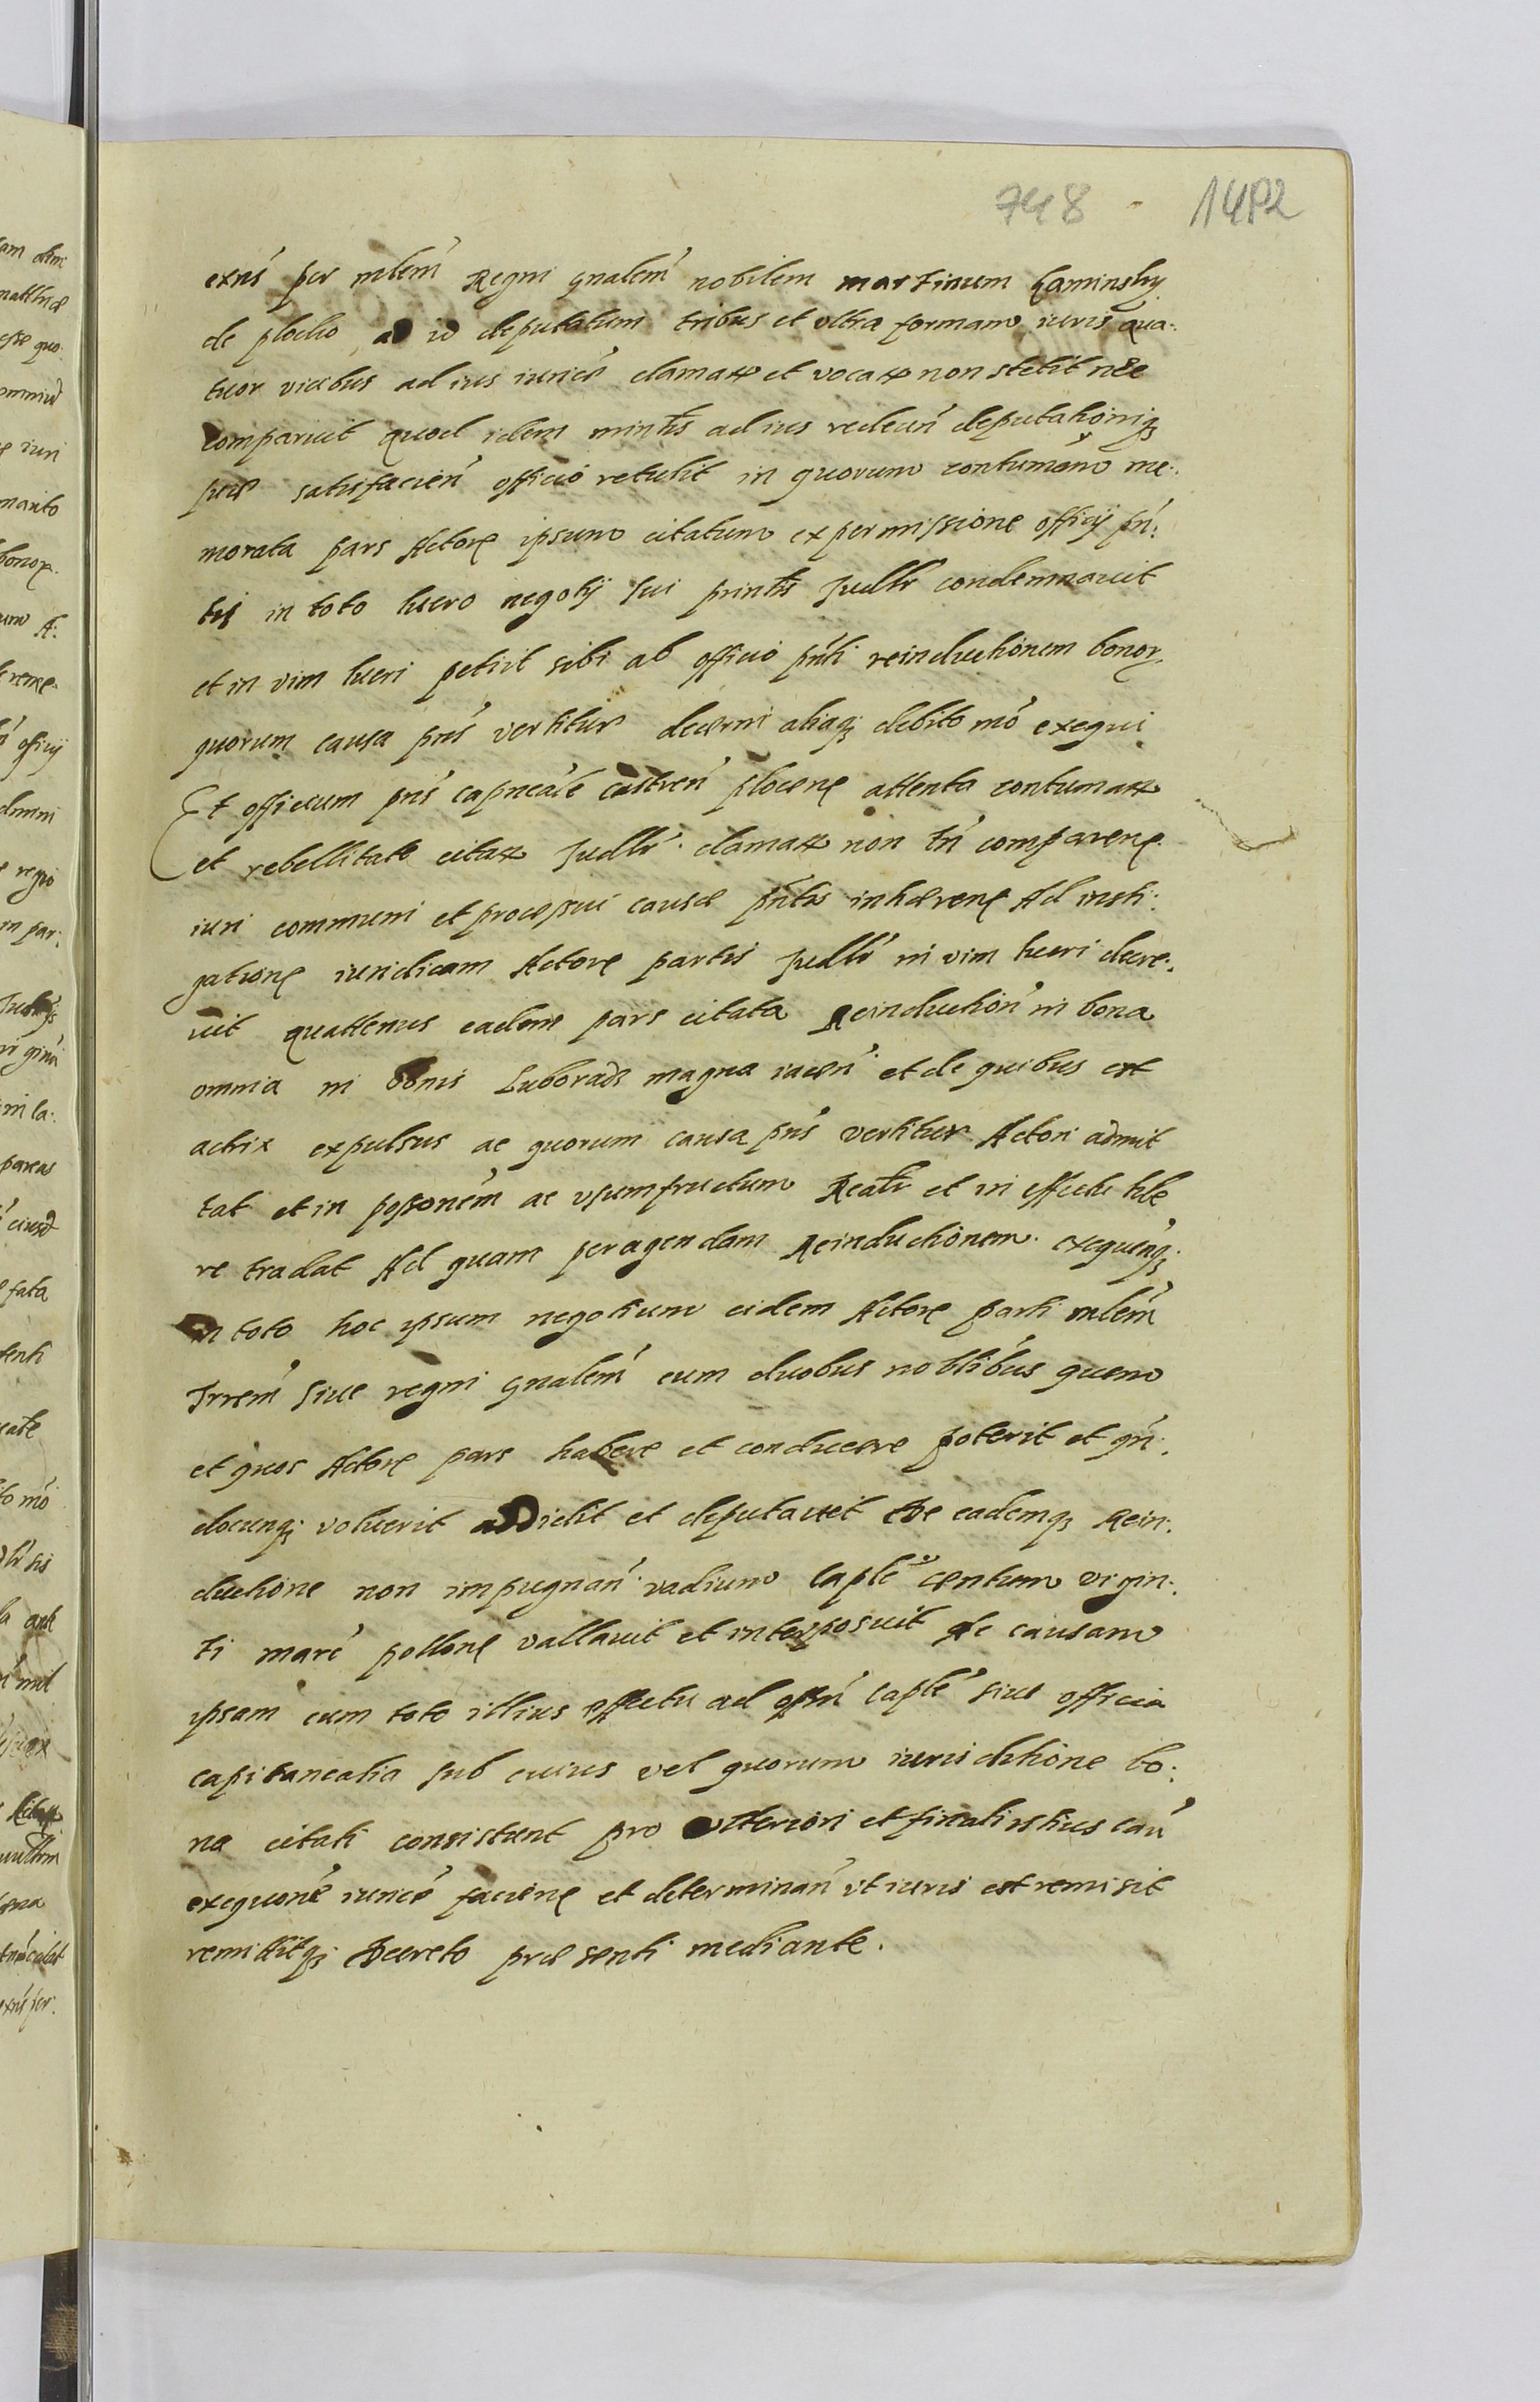 748 - 1482
exns per mlem Regni gnalem nobilem martinum Kaminsky
de plocko ad id deputatum tribus et vltra formam iuris qua-
tuor vicibus ad ius iurice clamat et vocat non stetit nec
comparuit quod idem mintr ad ius rediens deputationiq;
suae satisfacien officio retulit in quorum contumam me-
morata pars Actore ipsum citatum ex permissione officij pn-
tis in toto lucro negotij sui printis Judlr condemnavit
et in vim lucri petiit sibi ab officio pnti reinductionem bonor
quorum causa pns vertitur decerni aliaq; debito mo exequi
Et officium pns capneale castren plocene attenta contumat
et rebellitate citat Judlr clamat non tn comparene
iuri communi et processui causae pntis inhaerene Ad insti-
gatione iuridicam Actore partis Judlr in vim lucri decre-
uit quattenus eadem pars citata Reinduction in bona
omnia in bonis Luboradz magna iacen et de quibus est
actrix expulsus ac quorum causa pns vertitur Actori admit
tat et in possonem ac vsumfructum Realr et in effectu libe
re tradat Ad quam peragendam Reinductionem exequenq;
in toto hoc ipsum negotium eidem Actore parti mlem
Trrem siue regni gnalem cum duobus noblibus quem
et quos Actore pars habere et conducere poterit et qn-
docunq; voluerit addidit et deputauit De eademq; Rein-
ductione non impugnan vadium caple centum vigin-
ti marc pollone vallauit et interposuit Ac causam
ipsam cum toto illius effectu ad offm caple siue officia
capitanealia sub cuius vel quorum iurisdictione bo-
na citati consistunt pro vlteriori et finali istius cau
exequone iurice faciene et determinan vt iuris est remisit
remittitq; Decreto prae senti mediante.